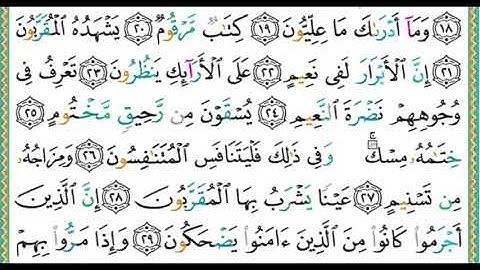 ١٨ وَمَآ أَدْرَىٰكَ مَا عِلِّيُّونَ ١٩ كِتَٰبٌ مَّرْقُومٌ ٢٠ يَشْهَدُهُ ٱلْمُقَرَّبُونَ
٢١ إِنَّ ٱلْأَبْرَارَ لَفِى نَعِيمٍ ٢٢ عَلَى ٱلْأَرَآئِكِ يَنظُرُونَ ٢٣ تَعْرِفُ فِى
وُجُوهِهِمْ نَضْرَةَ ٱلنَّعِيمِ ٢٤ يُسْقَوْنَ مِن رَّحِيقٍ مَّخْتُومٍ ٢٥
خِتَٰمُهُۥ مِسْكٌ ۚ وَفِى ذَٰلِكَ فَلْيَتَنَافَسِ ٱلْمُتَنَٰفِسُونَ ٢٦ وَمِزَاجُهُۥ
مِن تَسْنِيمٍ ٢٧ عَيْنًا يَشْرَبُ بِهَا ٱلْمُقَرَّبُونَ ٢٨ إِنَّ ٱلَّذِينَ
أَجْرَمُوا۟ كَانُوا۟ مِنَ ٱلَّذِينَ ءَامَنُوا۟ يَضْحَكُونَ ٢٩ وَإِذَا مَرُّوا۟ بِهِمْ